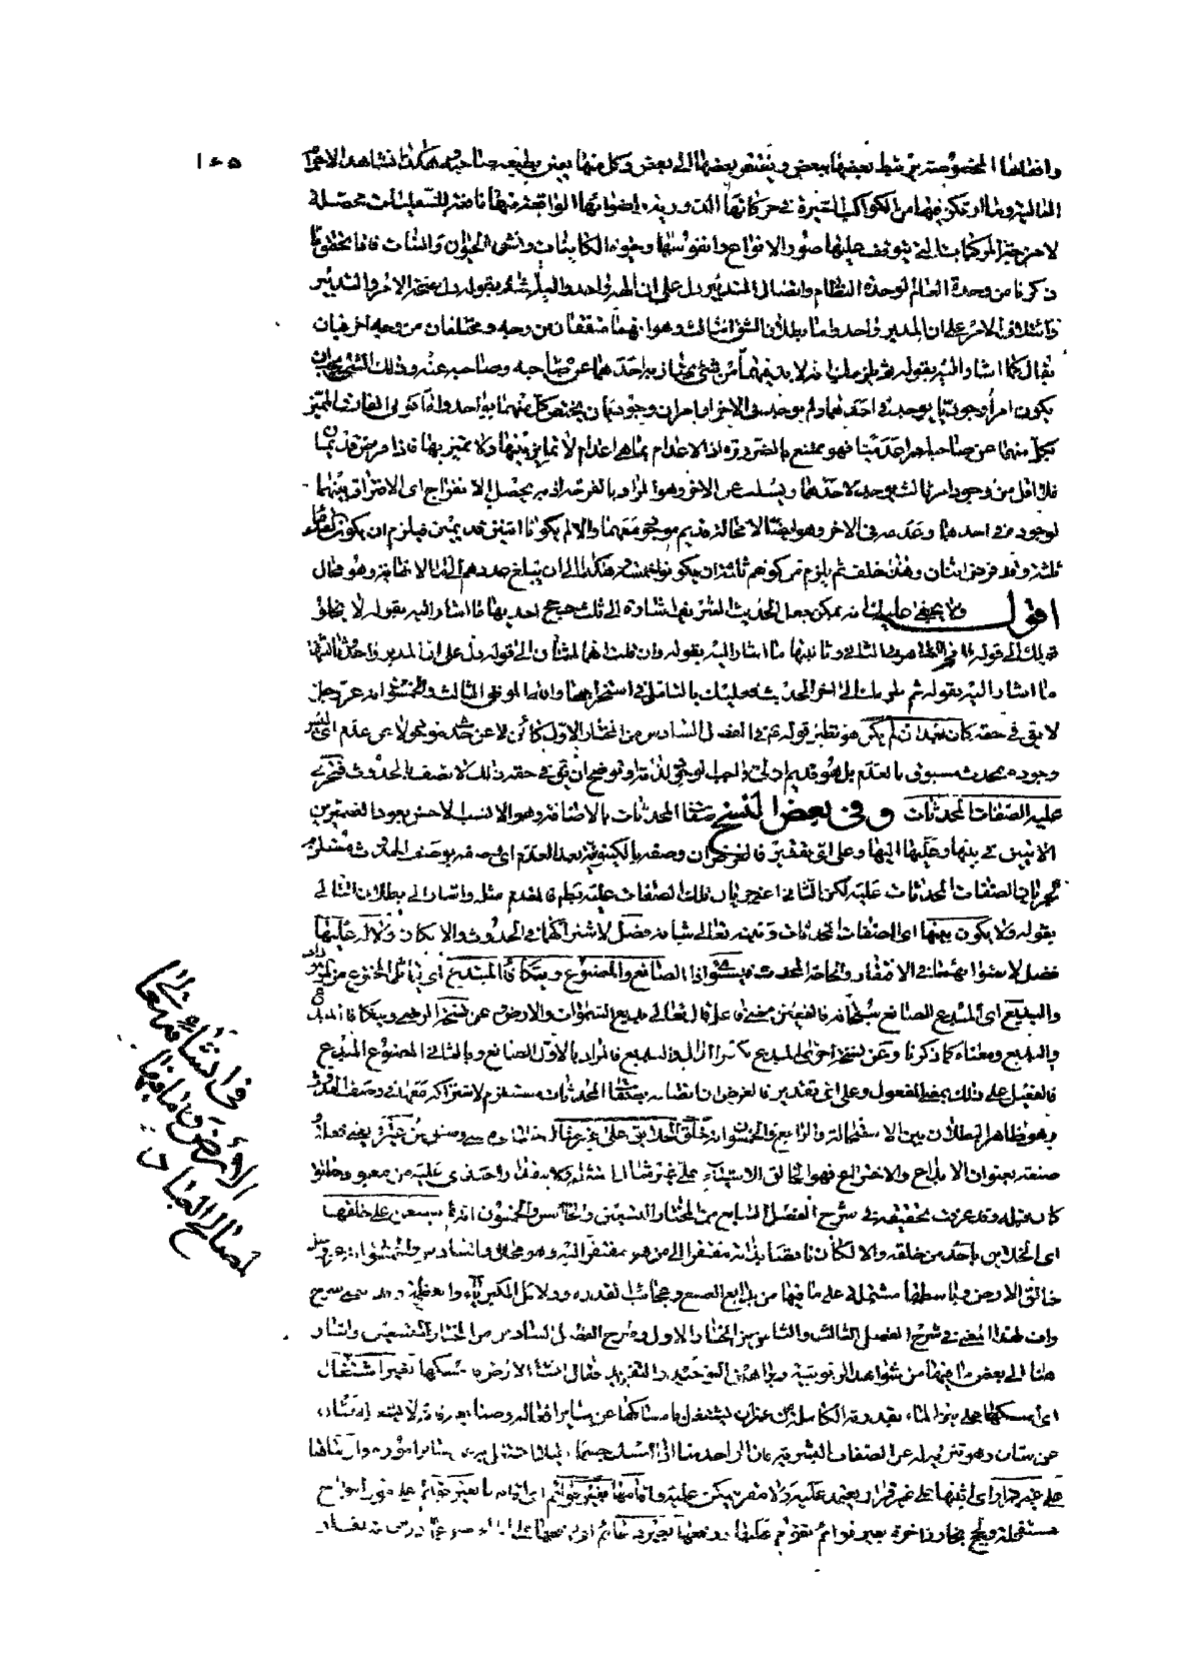 ١٠٥
وافعالها المخصوصة يرتبط بعضها ببعض ويفتقر بعضها الى بعض وكل منها يعين بطبعه صاحبه وهكذا نشاهد الاجرام
العالية وما ارتكز فيها من الكواكب النيرة في حركاتها الدورية واضوائها الواقعة منها نافعة للسفليات محصلة
لامزجة المركبات التي يتوقف عليها صور الانواع ونفوسها وحيوة الكاينات ونشو الحيوان والنبات فاذا تحقق ما
ذكرنا من وحدة العالم لوحدة النظام واتصال التدبير دل على ان الهه واحد واليه اشار بقوله دل صحة الامر والتدبير
وائتلاف الامر على ان المدبر واحد واما بطلان الشق الثالث وهو انهما متفقان من وجه ومختلفان من وجه اخر فبان
يقال كما اشار اليه بقوله ثم يلزمك انه لا بد فيهما من شيء يمتاز به احدهما عن صاحبه وصاحبه عنه وذلك الشيء يجب ان
يكون امرا وجوديا يوجد في احدهما ولم يوجد في الاخر او امران وجوديان يختص كل منهما بواحد واما كون الفارق المميز
لكل منهما عن صاحبه امرا عدميا فهو ممتنع بالضرورة اذ الاعدام بما هي اعدام لا تمايز بينها ولا تميز بها فاذا فرض قديمان
فلا اقل من وجود امر ثالث يوجد لاحدهما ويسلب عن الاخر وهو المراد بالفرجة اذ به يحصل الانفراج اى الافتراق بينهما
لوجوده في احدهما وعدمه في الاخر وهو ايضا لا محالة قديم موجود معهما والا لم يكونا اثنين قديمين فيلزم ان يكون القدماء
ثلثة وقد فرض اثنان وهذا خلف ثم يلزم من كونهم ثلثة ان يكونوا خمسة وهكذا الى ان يبلغ عددهم الى ما لا نهاية وهو محال
اقول ولا يخفى عليك انه يمكن جعل الحديث الشريف اشارة الى ثلث حجج احديها ما اشار اليه بقوله لا يخلو
قولك الى قوله للعجز الظاهر في الثاني وثانيها ما اشار اليه بقوله وان قلت انهما اثنان الى قوله دل على ان المدبر واحد وثالثها
ما اشار اليه بقوله ثم يلزمك الى اخر الحديث فعليك بالتامل في استخراجها والله الموفق الثالث والخمسون انه عز وجل
لا يقال في حقه كان بعد ان لم يكن هو نظير قوله في الفصل السادس من المختار الاول كائن لا عن حدث موجود لا عن عدم اى ليس
وجوده محدث مسبوق بالعدم بل هو قديم ازلي واجب الوجود لذاته وتوضيح ان يقال في حقه ذلك لاتصف بالحدوث فتجرى
عليه الصفات المحدثات وفي بعض النسخ صفات المحدثات بالاضافة وهو الانسب لاحسن بعود الضميرين
الآتيين في بينها وعليها اليها وعلى اى تقدير فالغرض ان وصفه بالكينونة بعد العدم اى وصفه بوصف الحدوث مستلزم
لجريان الصفات المحدثات عليه لكن التالي اعني جريان تلك الصفات عليه باطل فالمقدم مثله واشار الى بطلان التالي
بقوله ولا يكون بينها اى الصفات المحدثات وبينه تعالى شانه فصل لاشتراكهما في الحدوث والامكان ولا له عليها
فضل لاستوائهما في الافتقار والحاجة الى المحدث فيستوى اذا الصانع والمصنوع ويتكافأ المبتدع اى يتماثل المخترع من الموجودات
والبديع اى المبدع الصانع سبحانه فالفعيل بمعنى الفاعل قال تعالى بديع السموات والارض وعن نسخة الرضى ويتكافأ المبتدع
والبديع ومعناه كما ذكرنا وعن نسخة اخرى المبدع بكسر الدال والبديع فالمراد بالاول الصانع وبالثاني المصنوع المبتدع
فالفعيل على ذلك بمعنى المفعول وعلى اى تقدير فالغرض ان اتصافه بصفات المحدثات مستلزم لاشتراكه معها في وصف الحدوث
وهو ظاهر البطلان بين الاستحالة والرابع والخمسون انه خلق الخلايق على غير مثال
صنعه بعنوان الابداع والاختراع فهو الخالق الاشياء على غير مثال امتثله ولا مقدار احتذى عليه من معبود خالق
كان قبله وقد عرفت تحقيقه في شرح الفصل السابع من المختار التسعين والخامس والخمسون انه لم يستعن على خلقها
اى الخلايق باحد من خلقه والا لكان ناقصا بذاته مفتقرا الى من هو مفتقر اليه وهو محال والسادس والخمسون انه عز وجل
خالق الارض وباسطها مشتملة على ما فيها من بدايع الصنع وعجائب القدرة ودلائل الكبرياء والعظمة
وان لهذا المعنى في شرح الفصل الثالث والثامن من المختار الاول وشرح الفصل السادس من المختار التسعين واشار
هنا الى بعض ما فيها من شواهد الربوبية وبراهين التوحيد والتفريد فقال انشأ الارض فامسكها من غير اشتغال
اى امسكها على الماء بقدرته الكاملة من غير ان يشتغل بامساكها عن ساير افعاله وصنايعه فانه لا يشغله شان
عن شان وهو تنزيه له عن الصفات البشرية فان الواحد منا اذا امسك جسما ثقيلا اشتغل به عن ساير اموره وارساها
على غير قرار اى اثبتها على غير قرار يعتمد عليه ولا مقر يتمكن عليه واقامها بغير قوائم اى اقامها بغير قوائم على فوق امواج
مستفحلة ولجج بحار زاخرة بغير قوائم تقوم عليها ورفعها بغير دعائم اى رفعها على الماء
في انشاء
الارض وما فيها
لمصالح العباد